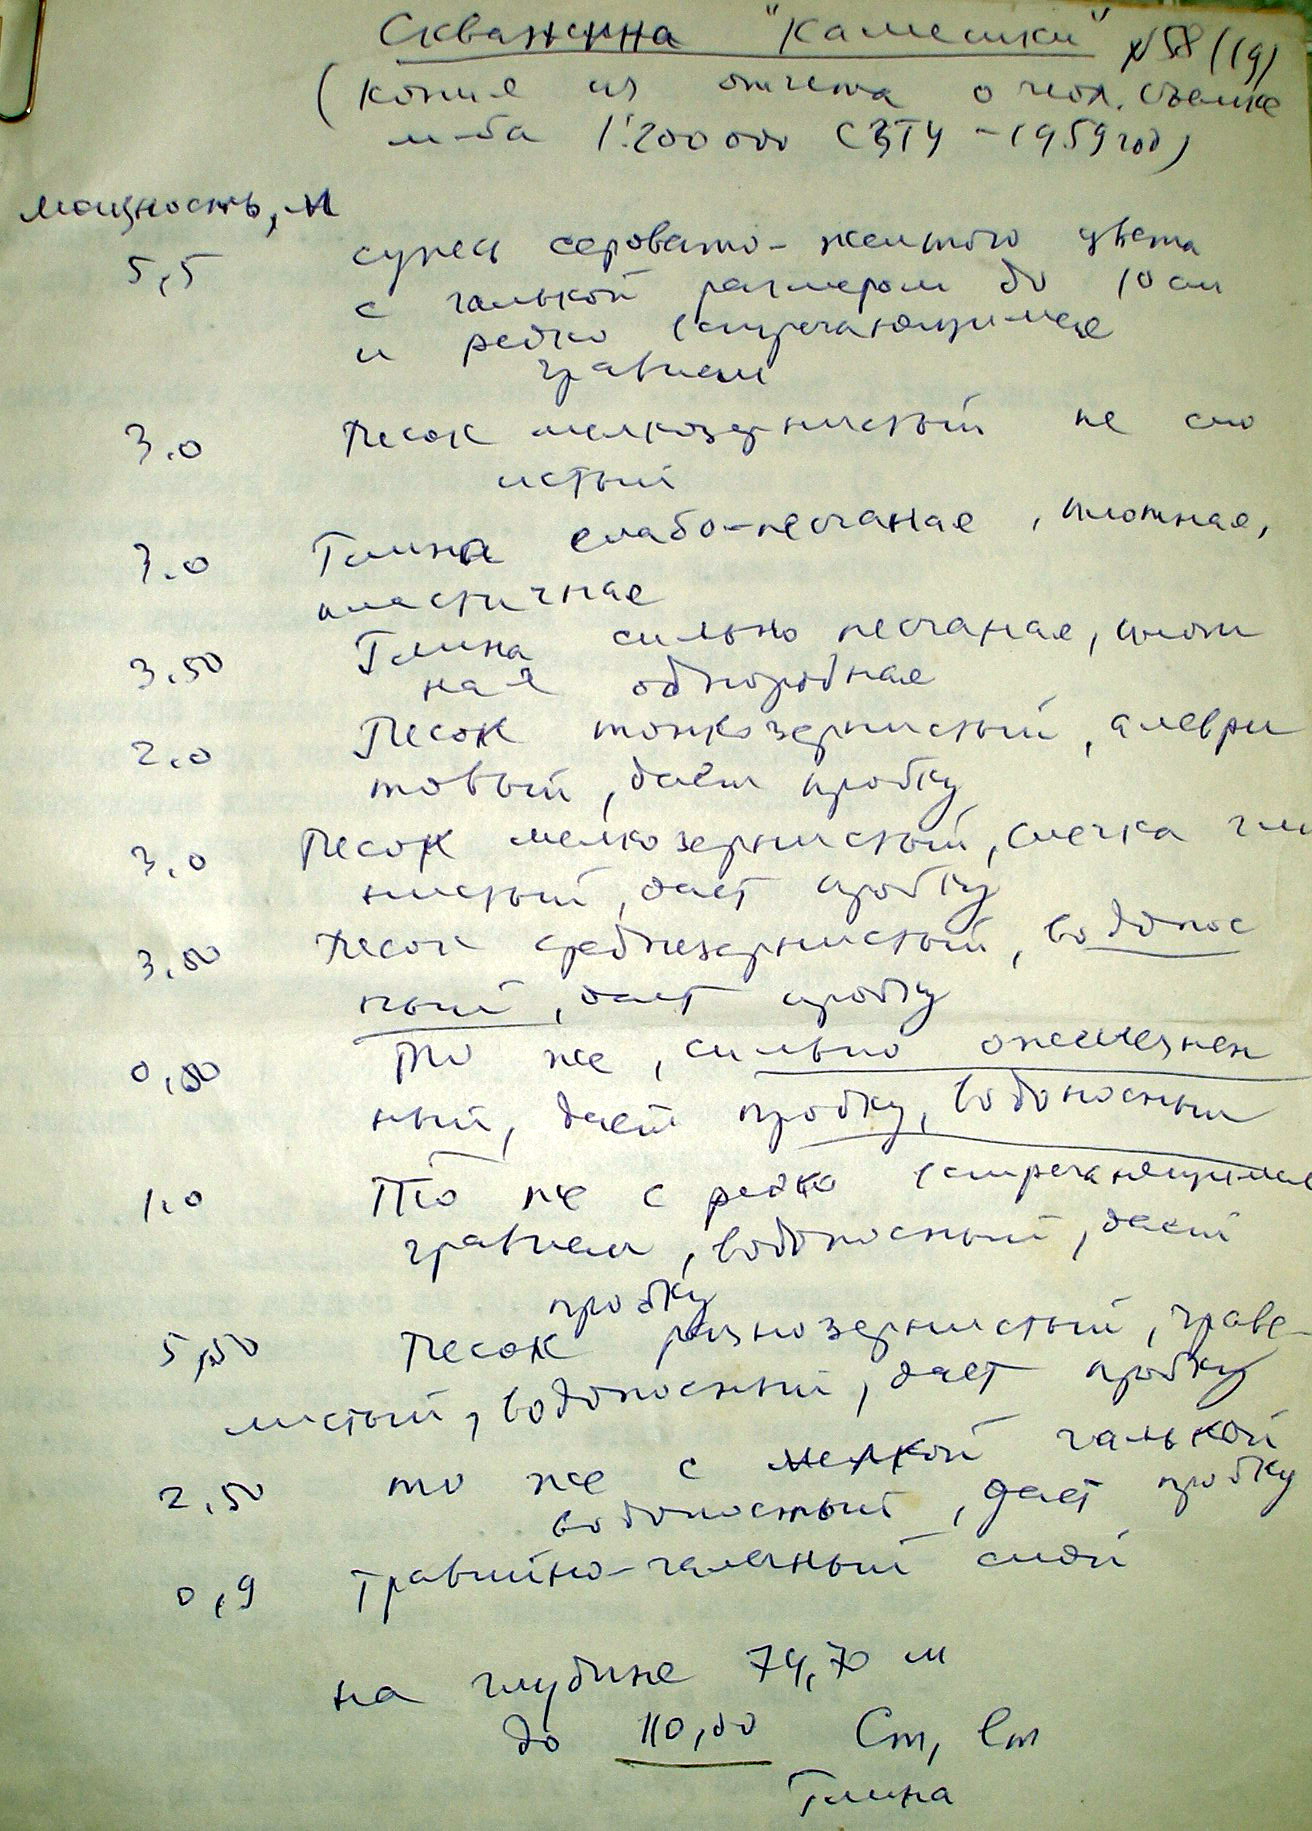 Скважина "Камешки" №58 (19)
(копия из отчета о геол. съемке
м-ба 1:200 000 СЗТУ - 1959 год)
мощность, м
5,5 супесь серовато-желтого цвета
с галькой размером до 10 см
и редко встречающимся
гравием
3.0 Песок мелкозернистый не сло
истый
3.0 Глина слабо-песчаная, плотная,
пластичная
3.50 Глина сильно песчаная, плот
ная однородная
2.0 Песок тонкозернистый, алеври
товый, даёт пробку
3.0 Песок мелкозернистый, слегка гли
нистый, дает пробку
3.00 Песок среднезернистый, водонос
ный, дает пробку
То же, сильно ожелезнен
ный, дает пробку, водоносный
1.0 То же с редко встречающимся
гравием, водоносный, дает
пробку
5,50 Песок разнозернистый, граве-
листый, водоносный, дает пробку
2,50 то же с мелкой галькой
водоносный, дает пробку
0,9 Гравийно-галечный слой
на глубине 74,70 м
до 110,00 Cm, lm
Глина